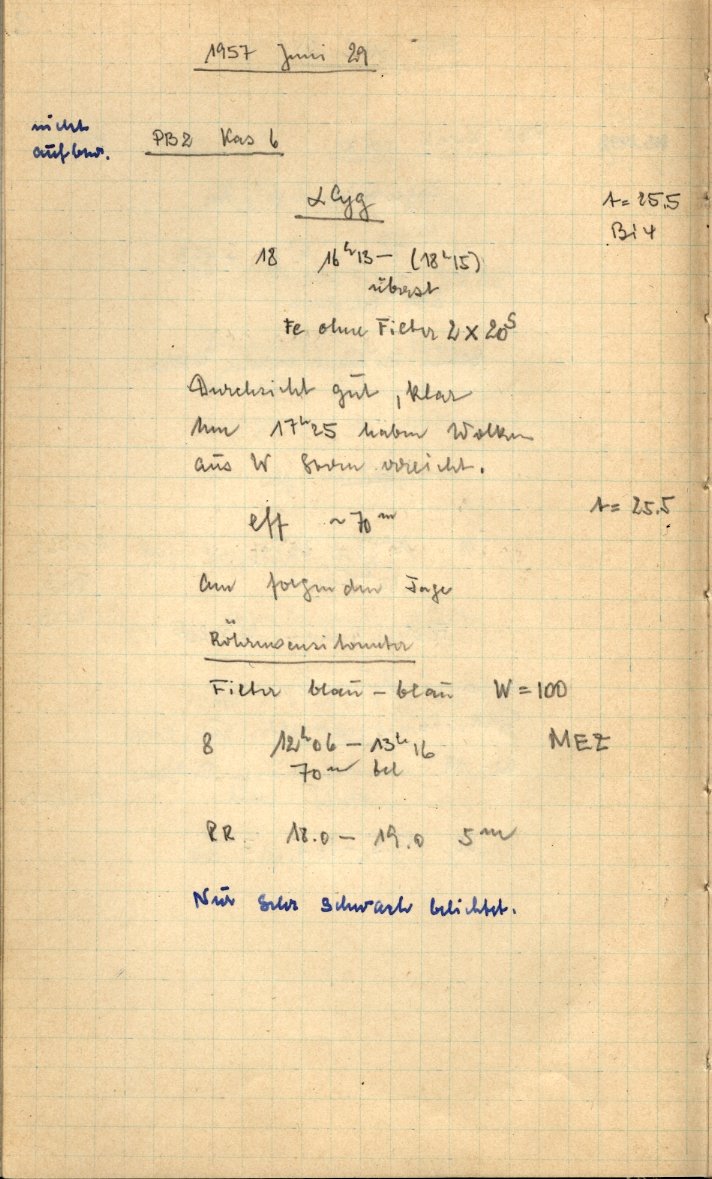 1957 Juni 29
nicht
aufbew.
PB2 Kas 6
α Cyg
t = 25.5
Bi 4
18 16ʰ13 – (18ʰ15)
überst
Fe ohne Filter 2 × 20ˢ
Durchsicht gut, klar
Um 17ʰ25 haben Wolken
aus W Stern erreicht.
t = 25.5
eff ~ 70ᵐ
Am folgenden Tage
Röhrensensitometer
Filter blau – blau W = 100
8 12ʰ06 – 13ʰ16 MEZ
70ᵐ bel
PR 18.0 – 19.0 5ᵐ
Nur sehr schwach belichtet.